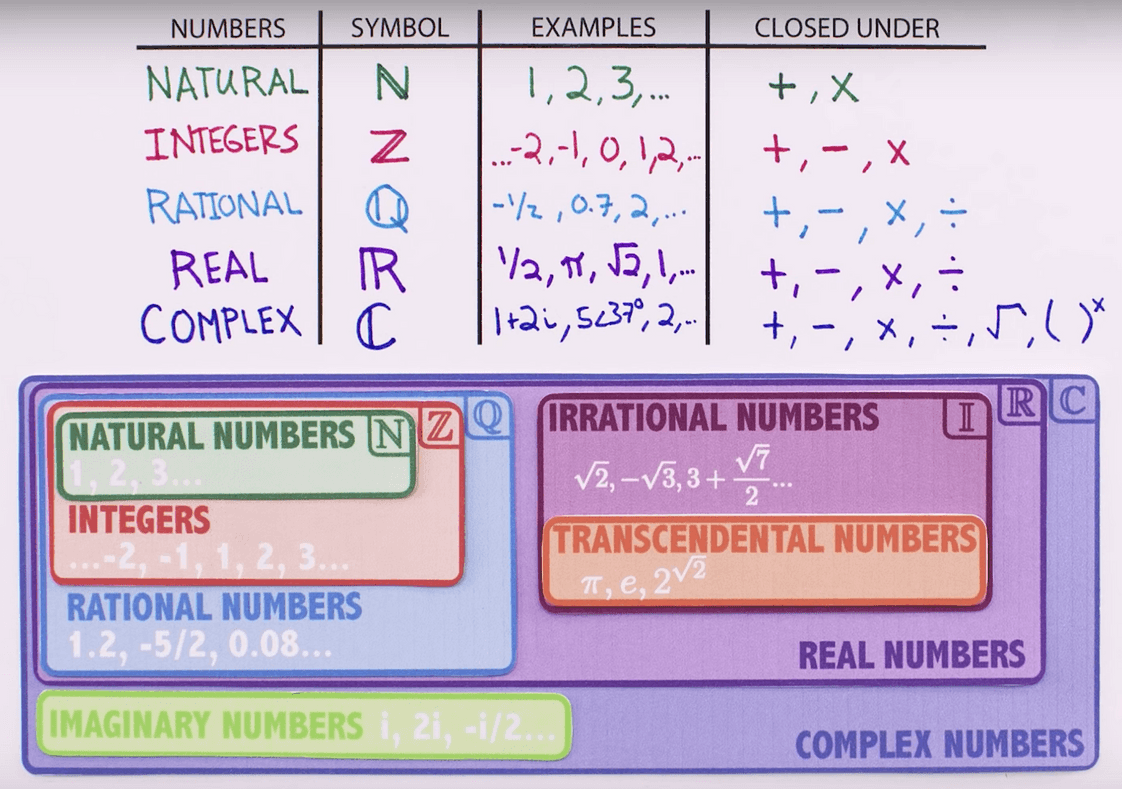 NUMBERS SYMBOL EXAMPLES CLOSED UNDER
NATURAL ℕ 1, 2, 3, ... +, x
INTEGERS ℤ ...-2, -1, 0, 1, 2, ... +, -, x
RATIONAL ℚ -1/2, 0.7, 2, ... +, -, x, ÷
REAL ℝ 1/2, π, √2, 1, ... +, -, x, ÷
COMPLEX ℂ 1+2i, 5∠37°, 2, ... +, -, x, ÷, √, ( )ˣ
NATURAL NUMBERS ℕ
1, 2, 3...
ℤ
ℚ
INTEGERS
...-2, -1, 1, 2, 3...
RATIONAL NUMBERS
1.2, -5/2, 0.08...
IRRATIONAL NUMBERS 𝕀
√2, -√3, 3 + √7/2...
TRANSCENDENTAL NUMBERS
π, e, 2^√2
ℝ
ℂ
REAL NUMBERS
IMAGINARY NUMBERS i, 2i, -i/2...
COMPLEX NUMBERS